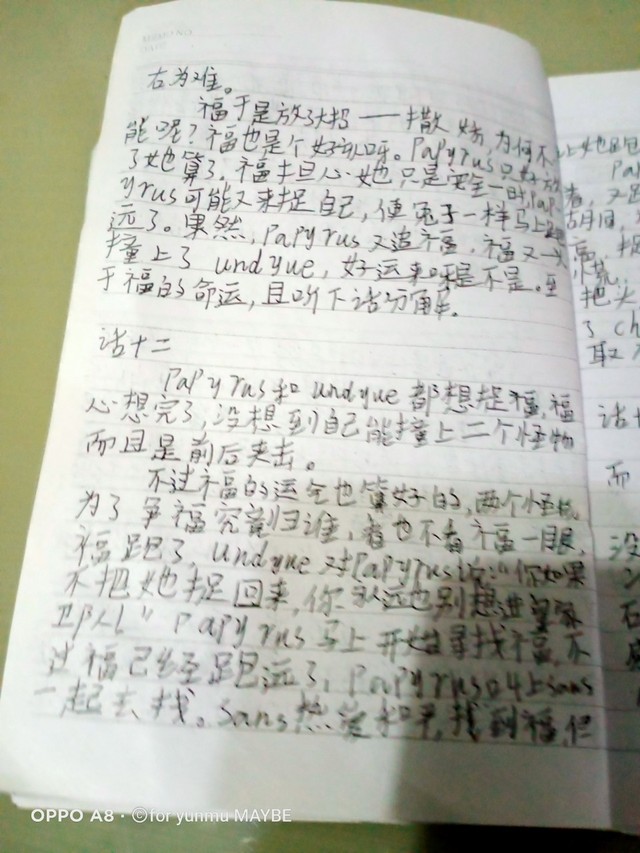 右为难。
福于是放大招——撒娇，为何不
能呢？福也是个好孩子呀。Papyrus只好放
了她算了。福担心她只是安全一时，Pap
yrus可能又来捉自己，便兔子一样马上跑
远了。果然，Papyrus又追福，福又一头
撞上了undyue，好运来哚是不是。至
于福的命运，且听下话分解。
话十二
Papyrus和undyue都想捉福，福
心想完了，没想到自己能撞上二个怪物
而且是前后夹击。
不过福的运气也算好的，两个怪物
为了争福究竟归谁，看也不看福一眼，
福跑了，undyue对Papyrus说：“你如果
不把她捉回来，你永远也别想进皇家
卫队”Papyrus马上开始寻找福，不
过福已经跑远了，Papyrus叫上sans
一起去找。sans热爱和平，找到福，但
让她
Pap
者，又
把头
了ch
取
话十
而
没
OPPO A8 · ©for yunmu MAYBE